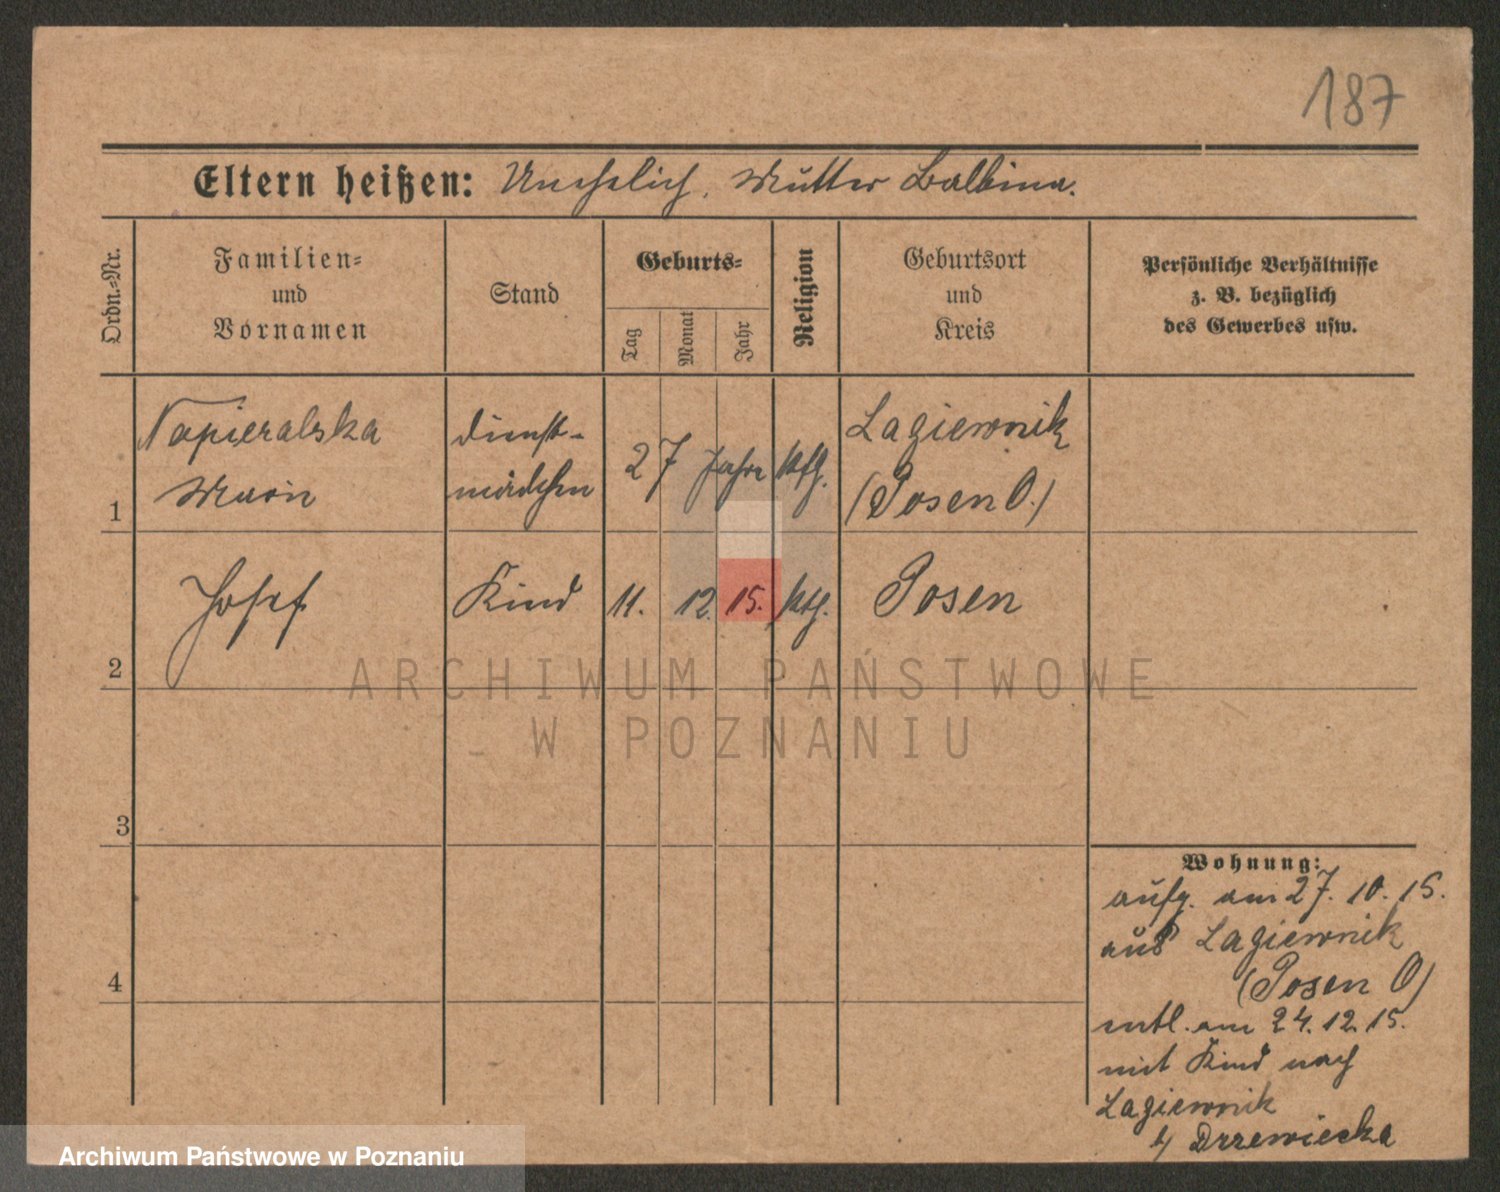 187
Eltern heißen: Unehelich, Mutter Balbina.
Ordn.-Nr.
Familien-
und
Vornamen
Stand
Geburts-
Tag
Monat
Jahr
Religion
Geburtsort
und
Kreis
Persönliche Verhältnisse
z. B. bezüglich
des Gewerbes usw.
1
Napieralska
Marie
Dienst-
mädchen
27 Jahre
kth.
Lagiewnik
(Posen O.)
2
Josef
Kind
11.
12.
15.
kth.
Posen
3
4
Wohnung:
aufg. am 27. 10. 15.
aus Lagiewnik
(Posen O)
entl. am 24. 12. 15.
mit Kind nach
Lagiewnik
b/ Drzewiecka
ARCHIWUM PAŃSTWOWE
W POZNANIU
Archiwum Państwowe w Poznaniu